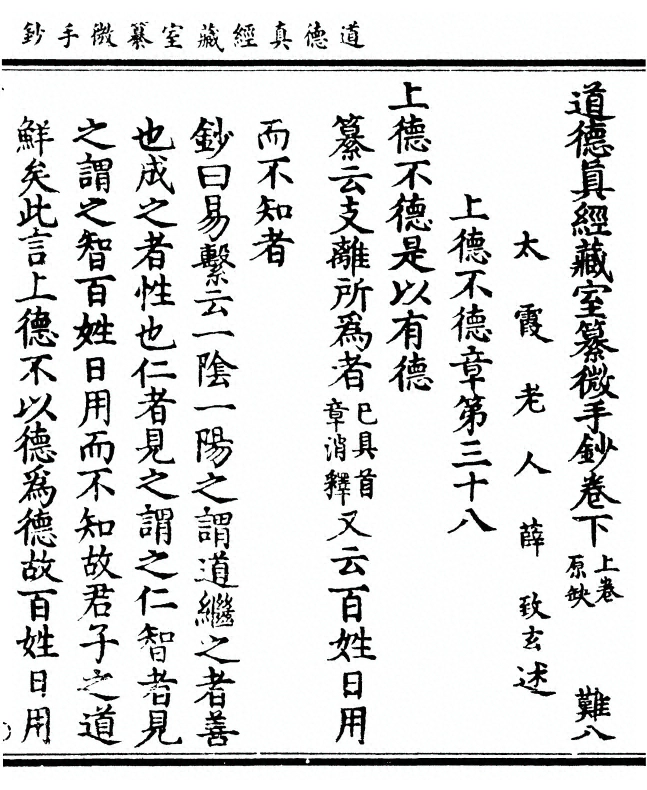 道德真經藏室纂微手鈔
道德眞經藏室纂微手鈔卷下 上卷原缺 難八
太霞老人薛致玄述
上德不德章第三十八
上德不德是以有德
纂云支離所爲者 已具首章消釋 又云百姓日用
而不知者
鈔曰易繫云一陰一陽之謂道繼之者善
也成之者性也仁者見之謂之仁智者見
之謂之智百姓日用而不知故君子之道
鮮矣此言上德不以德爲德故百姓日用